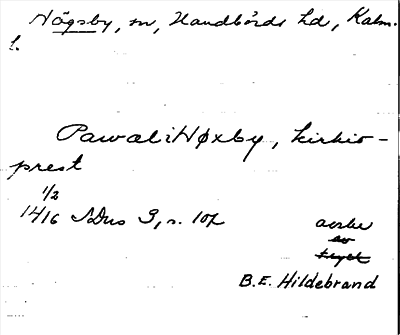 Högsby, sn, Handbörds hd, Kalm.
l.
Pawal i Høxby, kirkio-
prest
1/2
1416 SDns 3, s. 102
avskr
av
tryck
B.E. Hildebrand